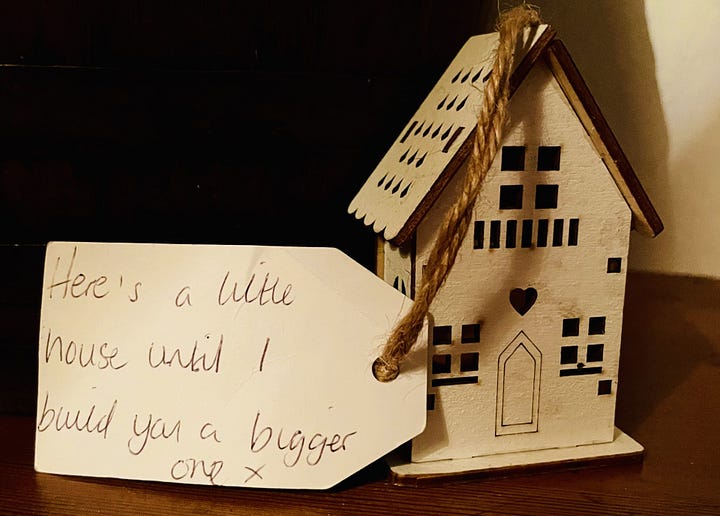 Here's a little
house until I
build you a bigger
one x